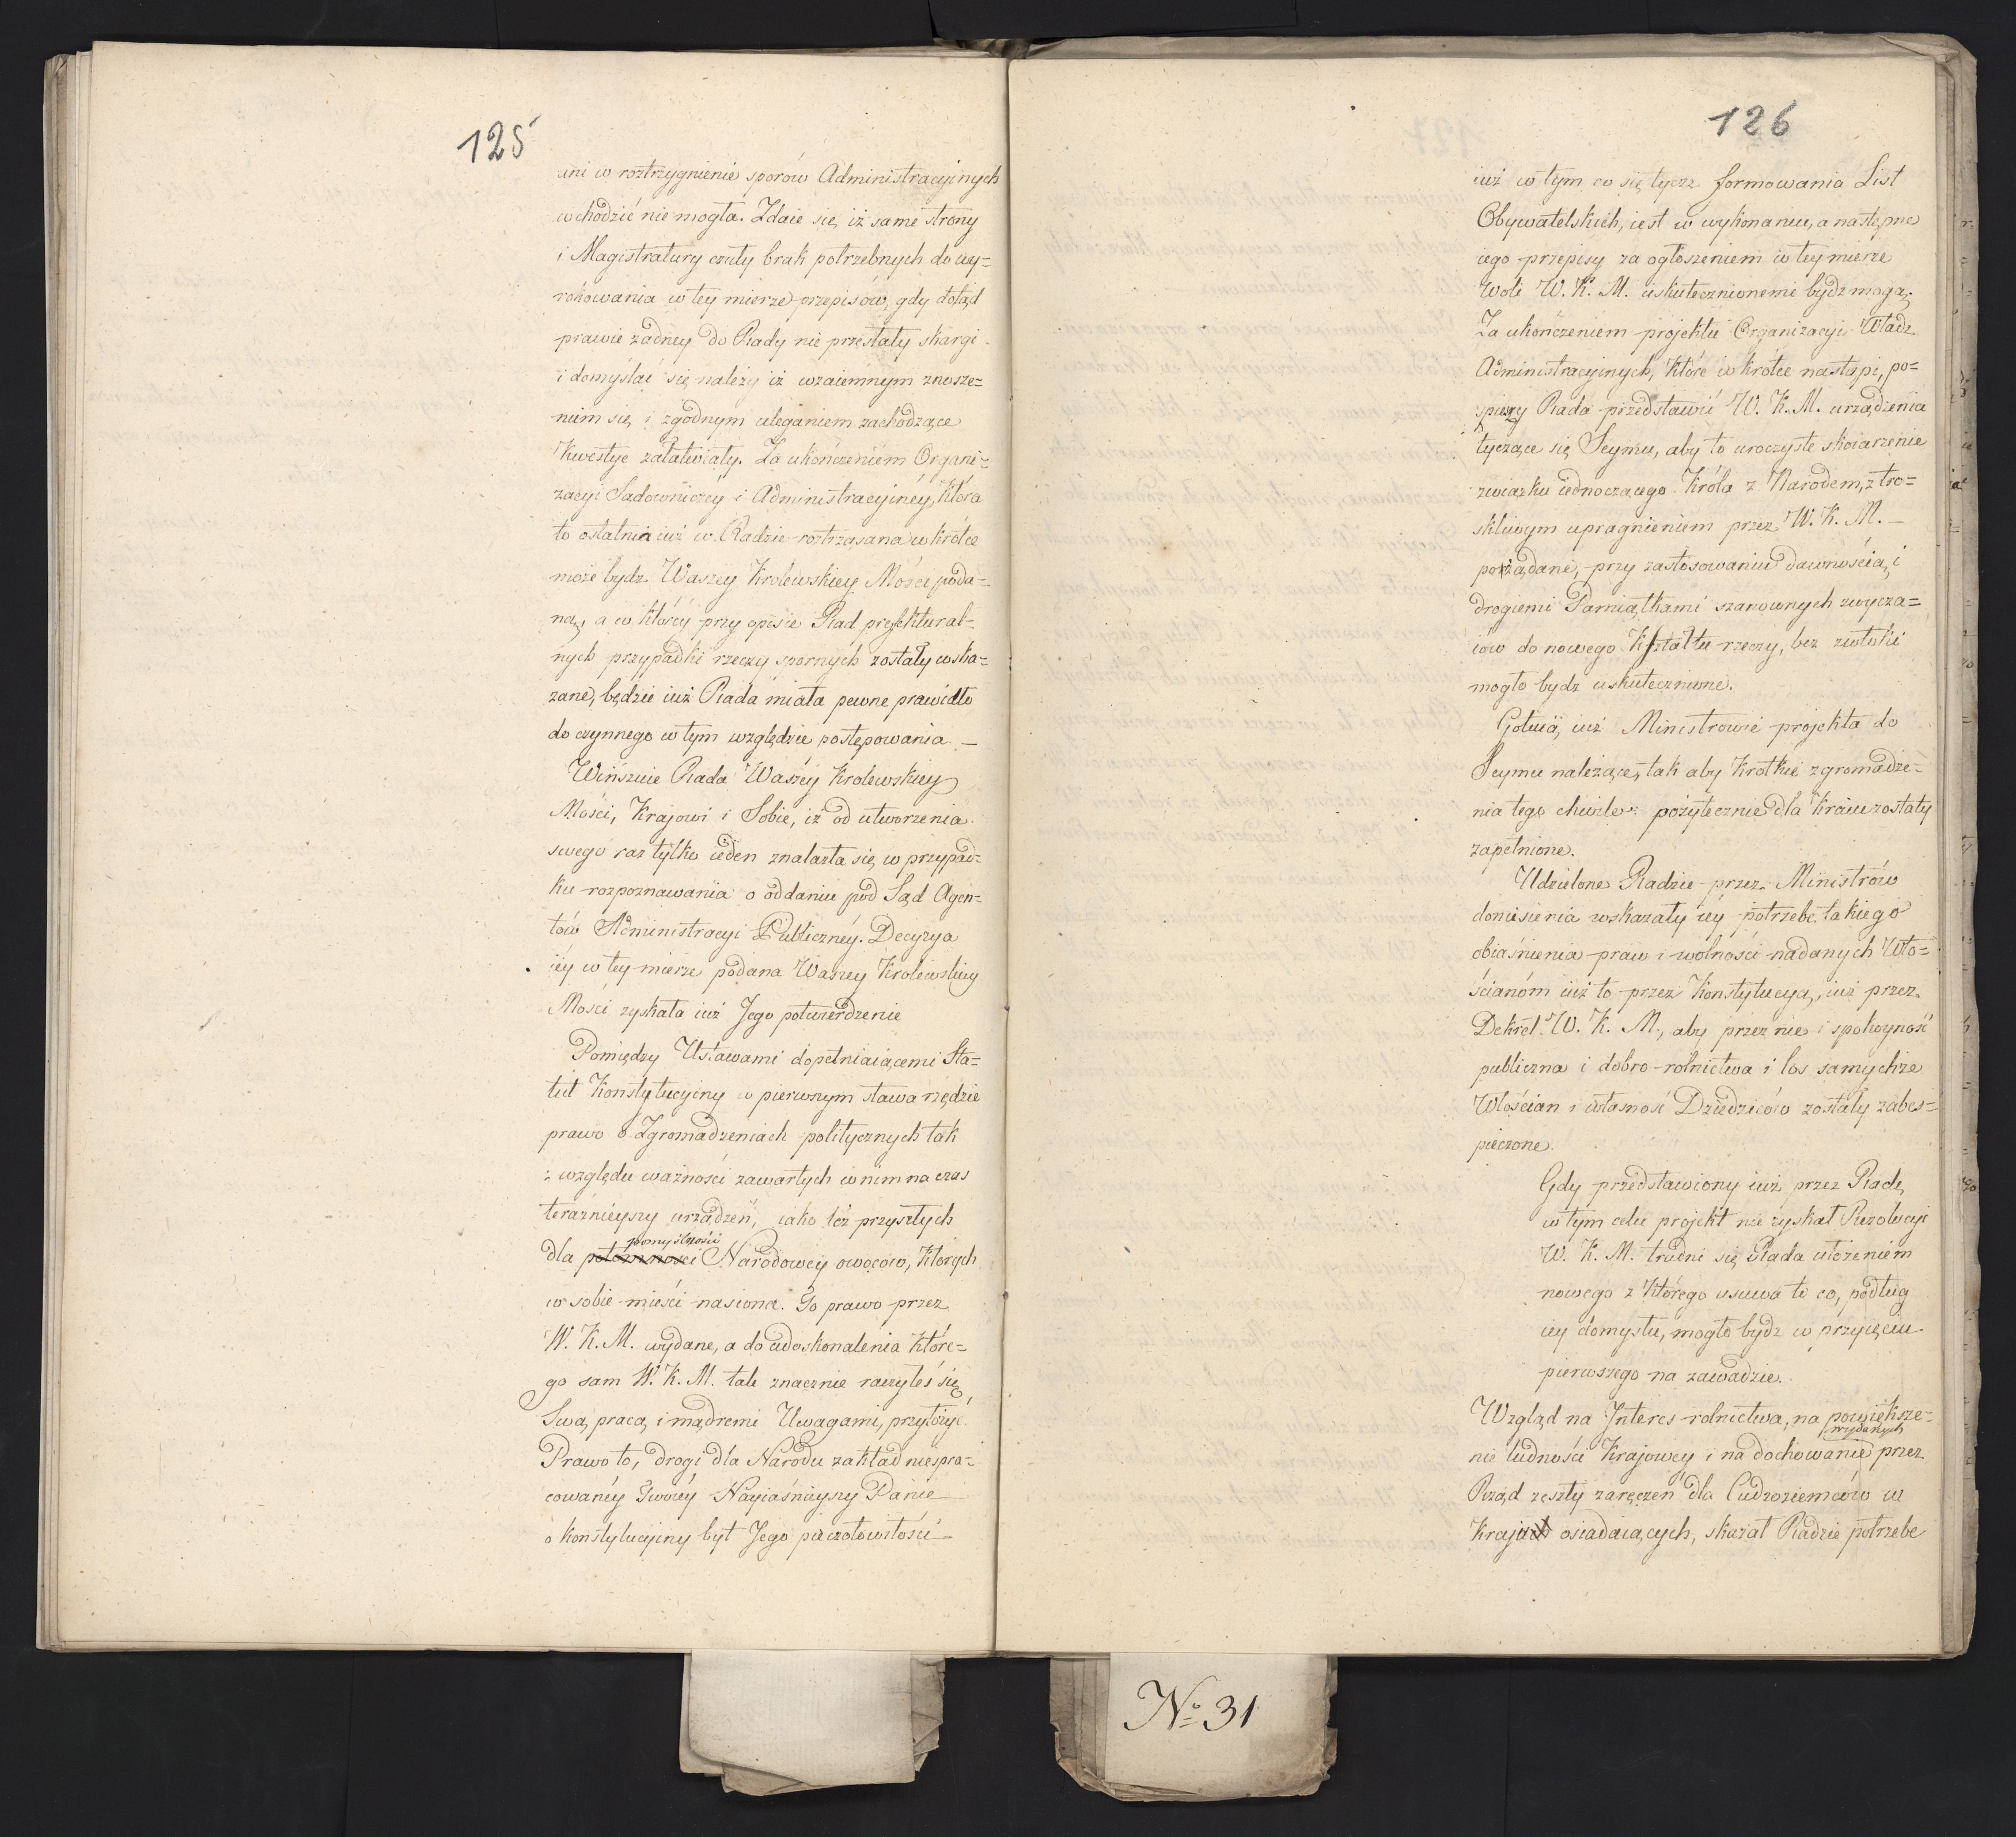 125
ani w roztrzygnienie sporow Administracyinych
wchodzić nie mogła. Zdaie się, iż same strony
i Magistratury czuły brak potrzebnych do wy=
rokowania w tey mierze przepisów, gdy dotąd
prawie żadney do Rady nie przesłały skargi
i domyślać się należy iż wzaiemnym znosze=
niem się i zgodnym uleganiem zachodzące
Kwestye załatwiały. Za ukończeniem Organi=
zacyi Sądowniczey i Administracyiney, która
to ostatnia iuż w Radzie roztrząsana wkrótce
może bydz Waszey Krolewskiey Mości poda=
ną, a w którey przy opisie Rad prefektural=
nych przypadki rzeczy spornych zostały wska=
zane, będzie iuż Rada miała pewne prawidło
do czynnego w tym względzie postępowania. —
Winszuie Rada Waszey Krolewskiey
Mości, Krajowi i Sobie, iż od utworzenia
swego raz tylko ieden znalazła się w przypad=
ku rozpoznawania o oddaniu pod Sąd Agen=
tów Administracyi Publiczney. Decyzya
iey w tey mierze podana Waszey Krolewskiey
Mości zyskała iuż Jego potwierdzenie
Pomiędzy Ustawami dopełniaiącemi Sta=
tut Konstytucyiny w pierwszym stawa rzędzie
prawo o Zgromadzeniach politycznych tak
z względu ważności zawartych w nim na czas
teraźnieyszy urządzeń, iako też przyszłych
pomyślności
dla potomności Narodowey owoców, których
w sobie mieści nasiona. To prawo przez
W. K. M. wydane, a do udoskonalenia które=
go sam W. K. M. tak znacznie raczyłeś się
Swą pracą i mądremi Uwagami, przyłożyć.
Prawo to, drogi dla Narodu zakład niespra=
cowaney Twoiey Nayiaśnieyszy Panie
o konstytucyiny byt Jego pieczołowitości
126
iuż w tym co się tycze formowania List
Obywatelskich, iest w wykonaniu, a następne
iego przepisy za ogłoszeniem w tey mierze
woli W. K. M. uskutecznionemi bydz mogą.
Za ukończeniem projektu Organizacyi Władz
Administracyinych, które wkrótce nastąpi, po=
spieszy Rada przedstawić W. K. M. urządzenia
tyczące się Seymu, aby to uroczyste skoiarzenie
związku iednoczącego Króla z Narodem, z tro=
skliwym upragnieniem przez W. K. M. —
pożądane, przy zastosowaniu dawnością i
drogiemi Pamiątkami szanownych zwycza=
iów do nowego Kształtu rzeczy, bez zwłoki
mogło bydz uskutecznione.
Gotuią iuż Ministrowie projekta do
Seymu należące, tak aby krotkie zgromadze=
nia tego chwile pożytecznie dla Kraiu zostały
zapełnione.
Udzielone Radzie przez Ministrów
doniesienia wskazały iey potrzebę takiego
obiaśnienia praw i wolności nadanych Wło=
ścianóm iuż to przez Konstytucyą, iuż przez
Dekret W. K. M., aby przez nie i spokoyność
publiczna i dobro rolnictwa i los samychże
Włościan i własność Dziedziców zostały zabes=
pieczone.
Gdy przedstawiony iuż przez Radę
w tym celu projekt nie zyskał Rezolucyi
W. K. M. trudni się Rada ułożeniem
nowego z którego usuwa to co, podług
iey domysłu, mogło bydz w przyięciu
pierwszego na zawadzie.
Wzgląd na Interes rolnictwa, na powiększe=
wydanych
nie ludności Krajowey i na dochowanie przez
Rząd zeszły zaręczeń dla Cudzoziemców w
Kraju osiadaiących, skazał Radzie potrzebę
No 31